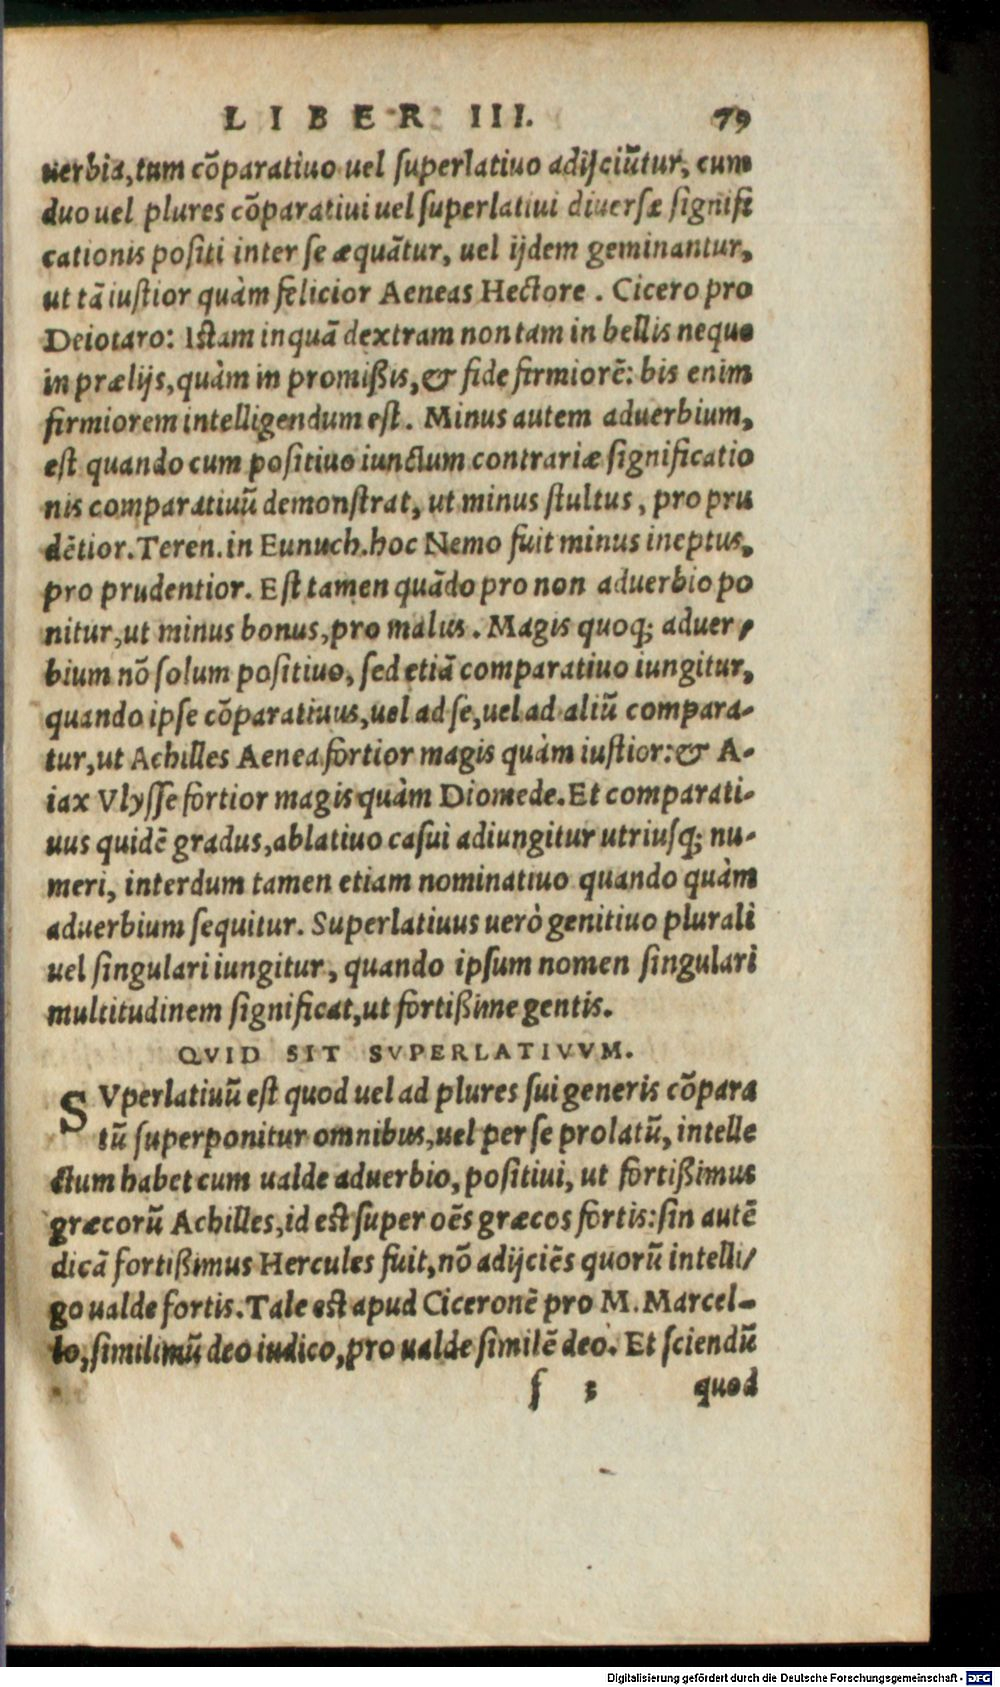 LIBER III. 79
uerbia, tum cõparatiuo uel superlatiuo adijciũtur, cum
duo uel plures cõparatiui uel superlatiui diuersæ signifi
cationis positi inter se æquãtur, uel ijdem geminantur,
ut tã iustior quàm felicior Aeneas Hectore. Cicero pro
Deiotaro: Istam inquã dextram non tam in bellis neque
in prælijs, quàm in promißis, & fide firmiorẽ: bis enim
firmiorem intelligendum est. Minus autem aduerbium,
est quando cum positiuo iunctum contrariæ significatio
nis comparatiuũ demonstrat, ut minus stultus, pro pru
dẽtior. Teren. in Eunuch. hoc Nemo fuit minus ineptus,
pro prudentior. Est tamen quãdo pro non aduerbio po
nitur, ut minus bonus, pro malus. Magis quoq; aduer,
bium nõ solum positiuo, sed etiã comparatiuo iungitur,
quando ipse cõparatiuus, uel ad se, uel ad aliũ compara-
tur, ut Achilles Aenea fortior magis quàm iustior: & A-
iax Vlysse fortior magis quàm Diomede. Et comparati-
uus quidẽ gradus, ablatiuo casui adiungitur utriusq; nu-
meri, interdum tamen etiam nominatiuo quando quàm
aduerbium sequitur. Superlatiuus uerò genitiuo plurali
uel singulari iungitur, quando ipsum nomen singulari
multitudinem significat, ut fortißime gentis.
QVID SIT SVPERLATIVVM.
SVperlatiuũ est quod uel ad plures sui generis cõpara
tũ superponitur omnibus, uel per se prolatũ, intelle
ctum habet cum ualde aduerbio, positiui, ut fortißimus
græcorũ Achilles, id est super oẽs græcos fortis: sin autẽ
dicã fortißimus Hercules fuit, nõ adijciẽs quorũ intelli/
go ualde fortis. Tale est apud Ciceronẽ pro M. Marcel-
lo, similimũ deo iudico, pro ualde similẽ deo. Et sciendũ
f 3 quod
Digitalisierung gefördert durch die Deutsche Forschungsgemeinschaft - DFG